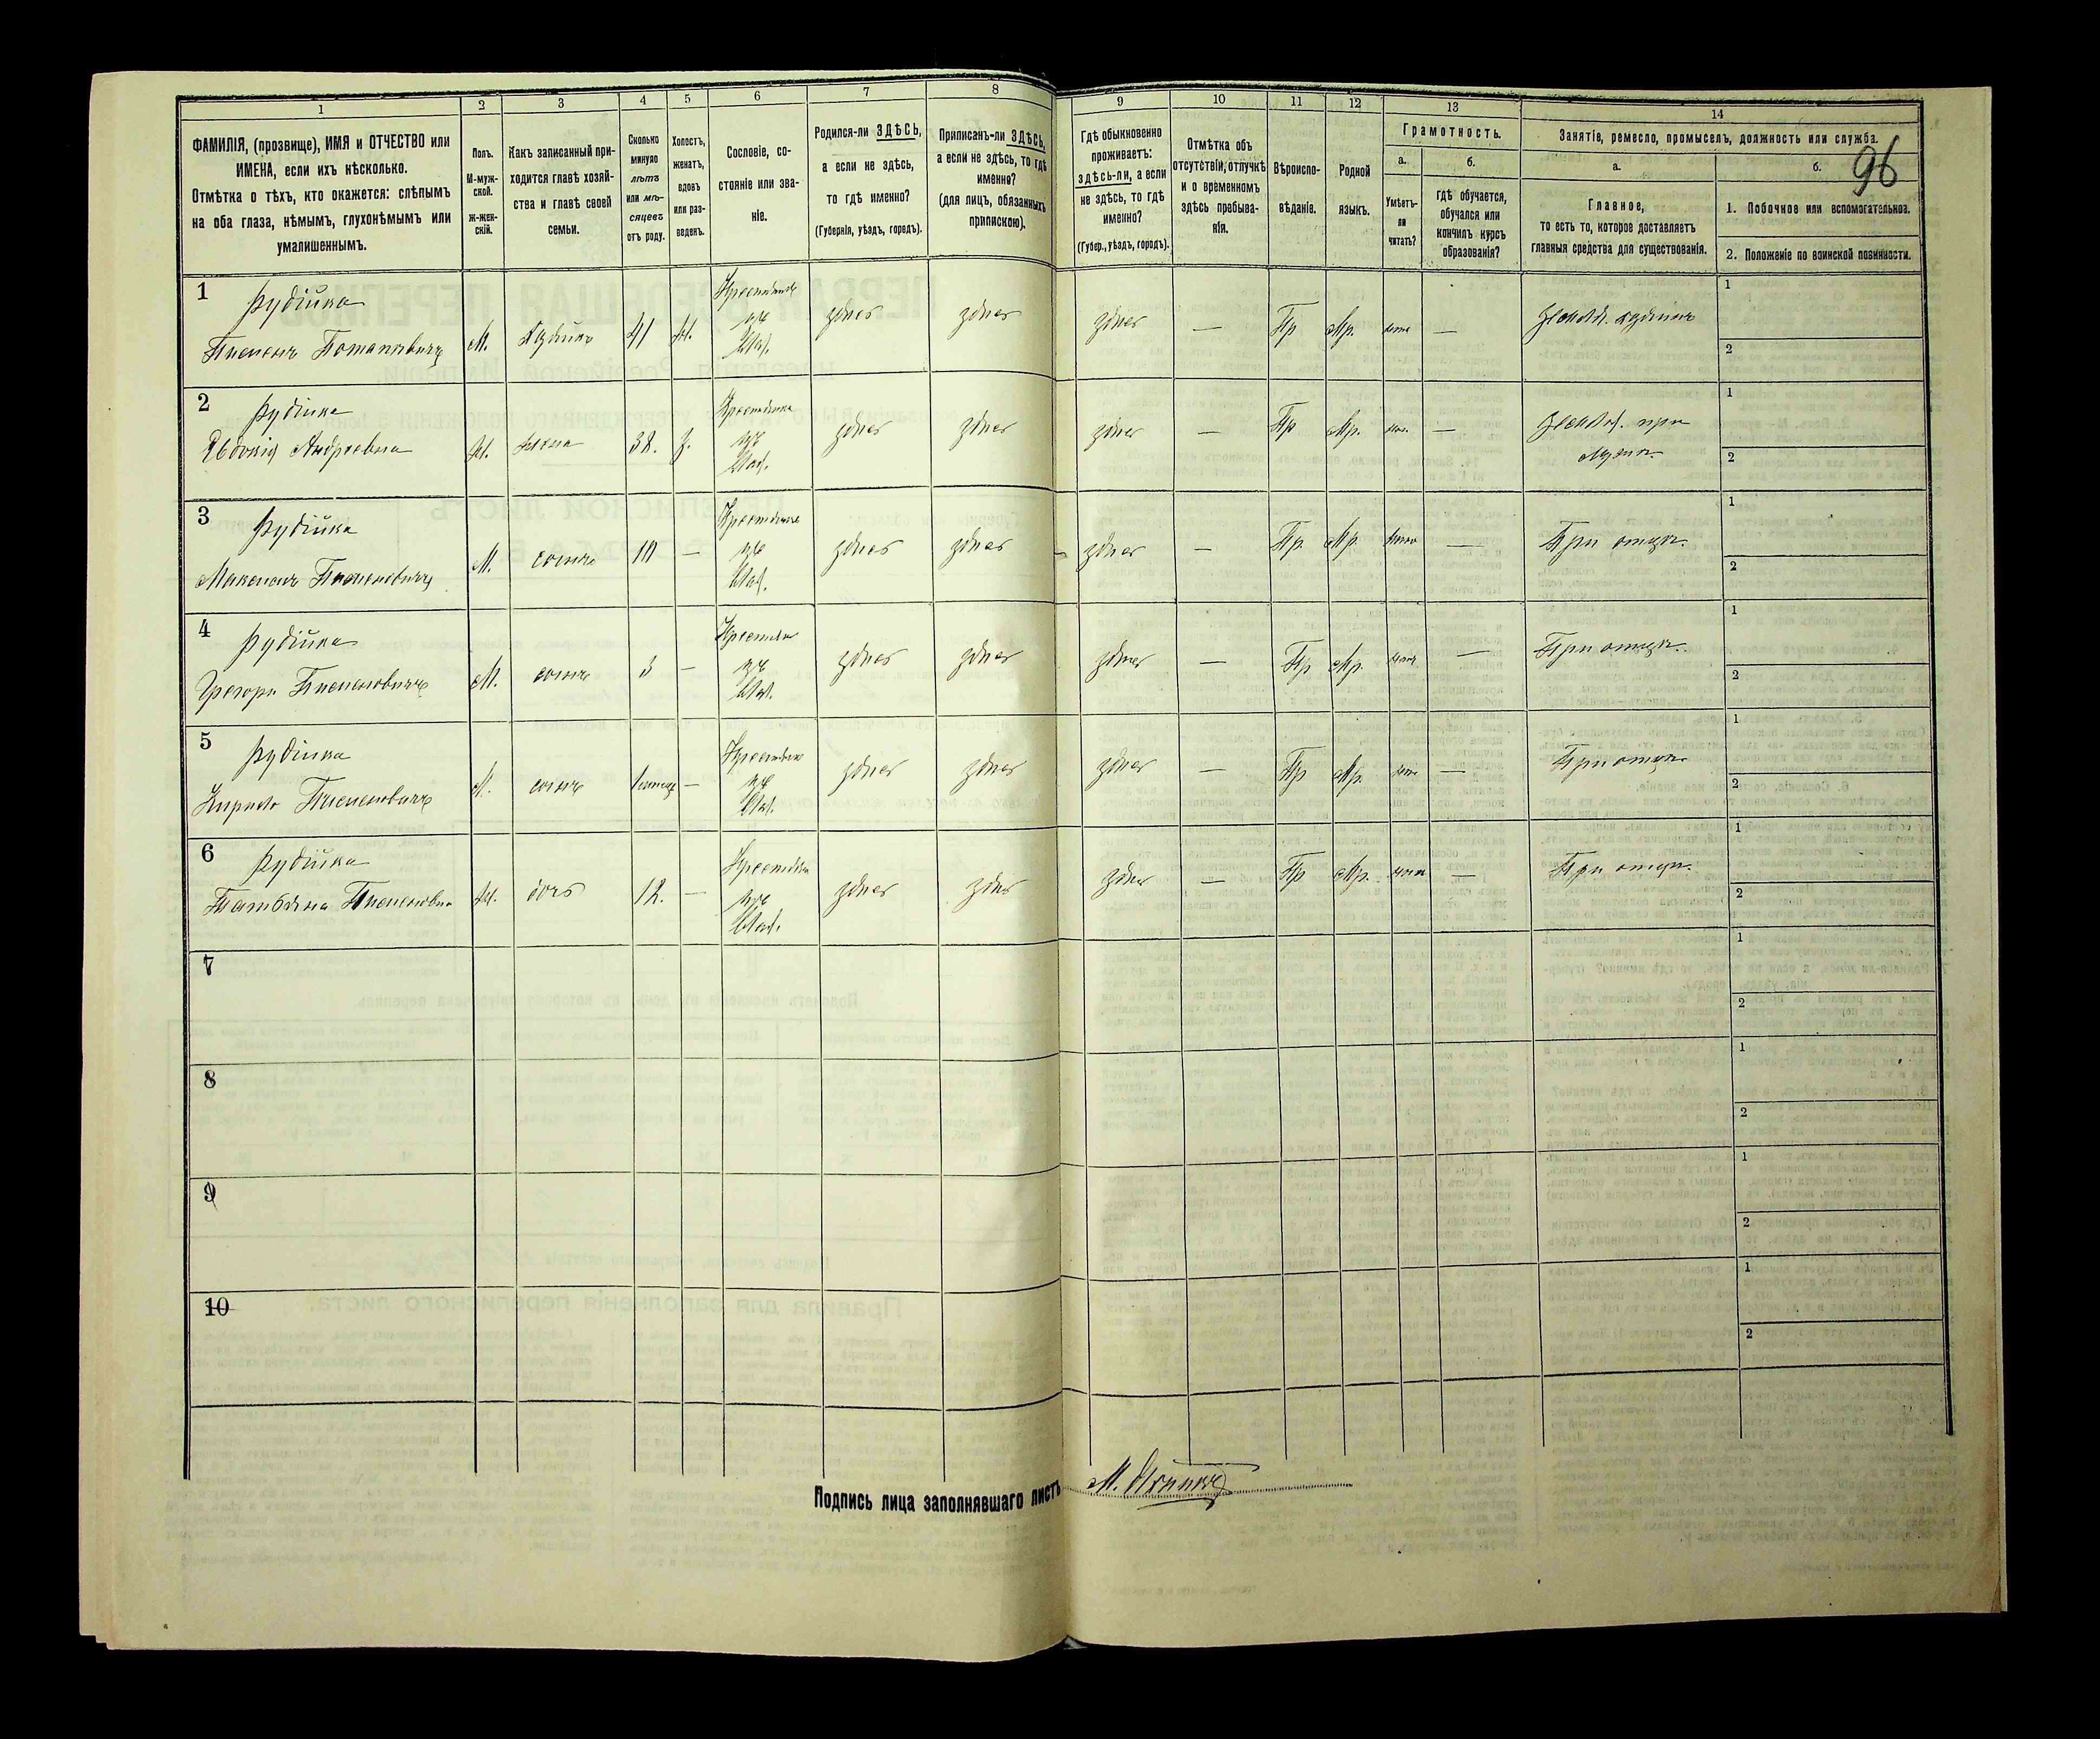 1
2
3
4
5
6
7
8
9
10
11
12
13
14
ФАМИЛІЯ, (прозвище), ИМЯ и ОТЧЕСТВО или
ИМЕНА, если ихъ нѣсколько.
Отмѣтка о тѣхъ, кто окажется: слѣпымъ
на оба глаза, нѣмымъ, глухонѣмымъ или
умалишеннымъ.
Полъ.
М-муж-
ской.
ж-жен-
скій.
Какъ записанный при-
ходится главѣ хозяй-
ства и главѣ своей
семьи.
Сколько
минуло
лѣтъ
или мѣ-
сяцевъ
отъ роду.
Холостъ,
женатъ,
вдовъ
или раз-
веденъ.
Сословіе, со-
стояніе или зва-
ніе.
Родился-ли ЗДѢСЬ,
а если не здѣсь,
то гдѣ именно?
(Губернія, уѣздъ, городъ).
Приписанъ-ли ЗДѢСЬ,
а если не здѣсь, то гдѣ
именно?
(для лицъ, обязанныхъ
припискою).
Гдѣ обыкновенно
проживаетъ:
здѣсь-ли, а если
не здѣсь, то гдѣ
именно?
(Губер., уѣздъ, городъ).
Отмѣтка объ
отсутствіи, отлучкѣ
и о временномъ
здѣсь пребыва-
ніи.
Вѣроиспо-
вѣданіе.
Родной
языкъ.
Грамотность.
а.
Умѣетъ-
ли
читать?
б.
гдѣ обучается,
обучался или
кончилъ курсъ
образованія?
Занятіе, ремесло, промыселъ, должность или служба.
96
а.
Главное,
то есть то, которое доставляетъ
главныя средства для существованія.
б.
1. Побочное или вспомогательное.
2. Положеніе по воинской повинности.
1
Рудійка
Пименъ Потаповичъ
М. 41 Ж. здѣсь здѣсь здѣсь — Пр Мр. —
1
2
2
Рудійка
Евдокія Андреевна
Ж. жена 38. З. здѣсь здѣсь здѣсь — Пр Мр. —
1
2
3
Рудійка
Максимъ Пименовичъ
М. сынъ — здѣсь здѣсь здѣсь — Пр Мр. — При отцѣ.
1
2
4
Рудійка
Григори Пименовичъ
М. сынъ 3 — здѣсь здѣсь здѣсь — Пр Мр. — При отцѣ.
1
2
5
Рудійка
Кирило Пименовичъ
М. сынъ — здѣсь здѣсь здѣсь — Пр Мр. — При отцѣ.
1
2
6
Рудійка
Татьяна Пименовна
Ж. дочь 12. — здѣсь здѣсь здѣсь — Пр Мр. — При отцѣ.
1
2
7
1
2
8
1
2
9
1
2
10
1
2
Подпись лица заполнявшаго листъ